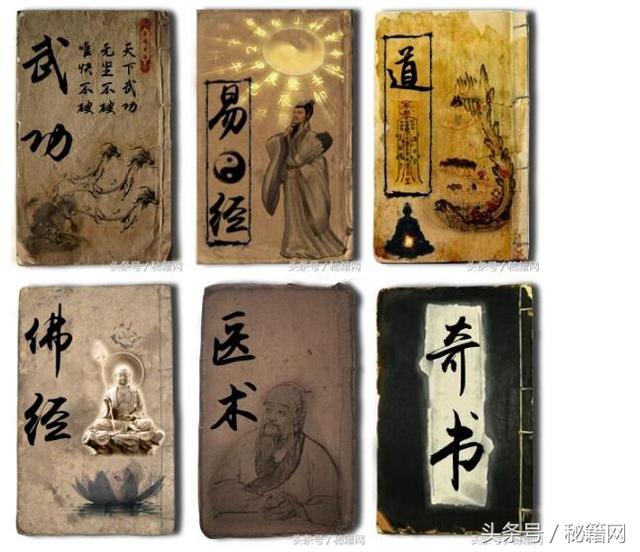 武功
天下武功
无坚不破
唯快不破
头条号/秘籍网
易经
头条号/秘籍网
道
头条号/秘籍网
佛经
头条号/秘籍网
医术
头条号/秘籍网
奇书
头条号/秘籍网